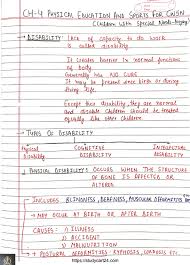 CH-4 PHYSICAL EDUCATION AND SPORTS FOR CWSN
(Children with Special Needs - Divyang)
DISABILITY: Lack of capacity to do work
is called disability.
It creates barrier in normal functions
of body
Generally has NO CURE
It may be present since birth or during
living life.
Except their disability they are normal
and disable children should be treated
equally like other children
TYPES OF DISABILITY
Physical Disability
Cognitive Disability
Intellectual Disability
PHYSICAL DISABILITY: OCCURS WHEN THE STRUCTURE
OF BONE IS AFFECTED OR
ALTERED
INCLUDES BLINDNESS, DEAFNESS, MUSCULAR DEFORMITIES
MAY OCCUR AT BIRTH OR AFTER BIRTH
CAUSES: 1) ILLNESS
2) ACCIDENT
3) MALNUTRITION
POSTURAL DEFORMITIES: KYPHOSIS, LORDOSIS ETC.
https://studycart24.com